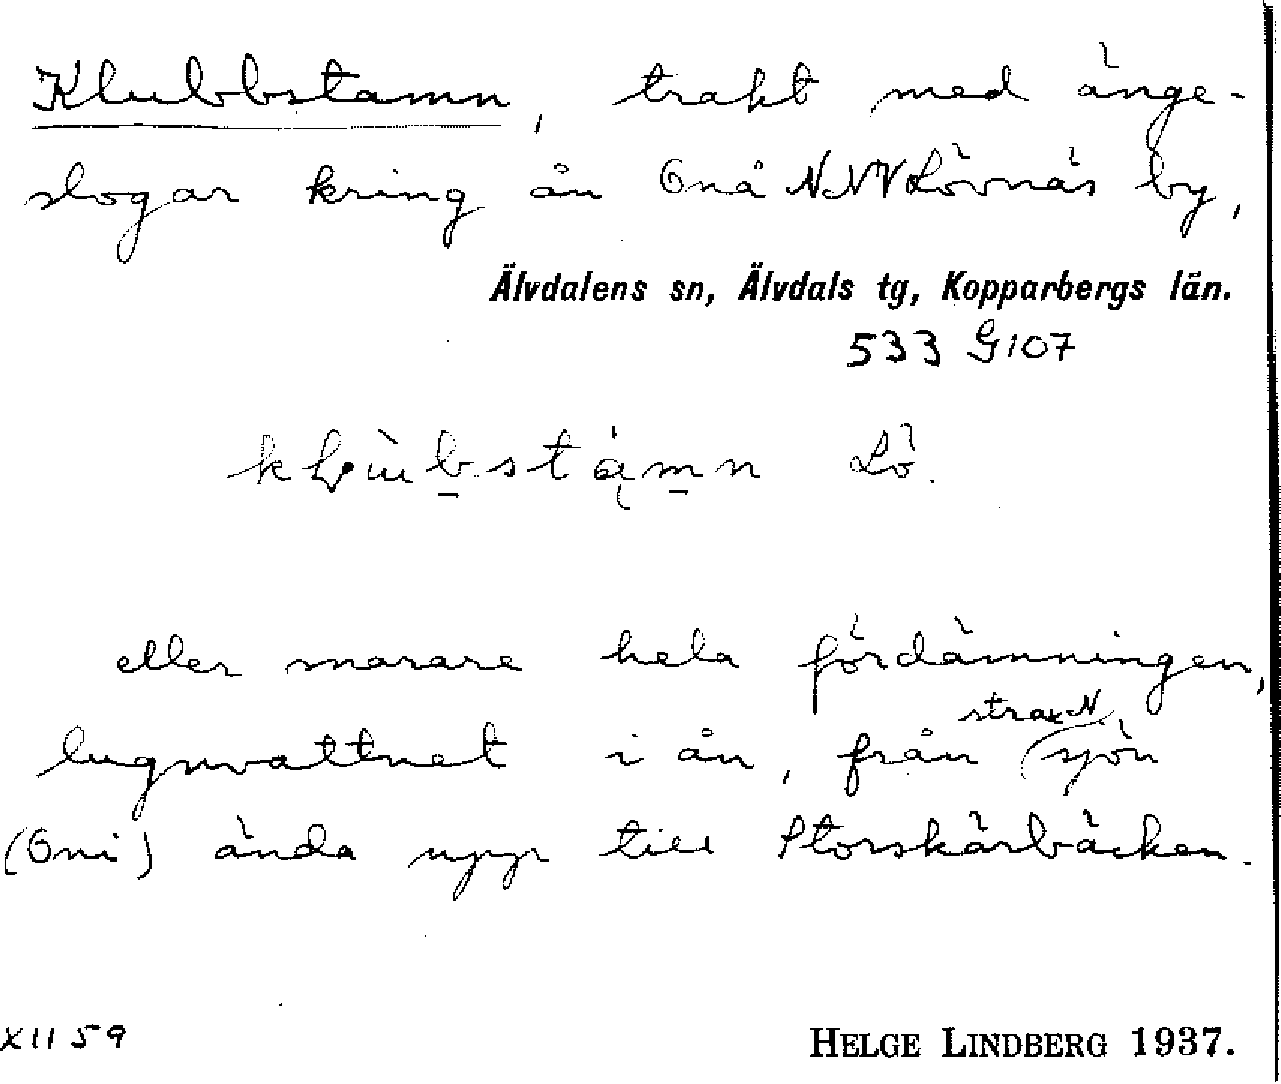 Klubbstamn, trakt med änge-
slogar kring ån Onå NNV Lövnäs by,
Älvdalens sn, Älvdals tg, Kopparbergs län.
533 G107
Lö.
eller snarare hela fördämningen,
strax N
lugnvattnet i ån, från sjön
(Oni) ända upp till Storskärbäcken.
XII 59
HELGE LINDBERG 1937.